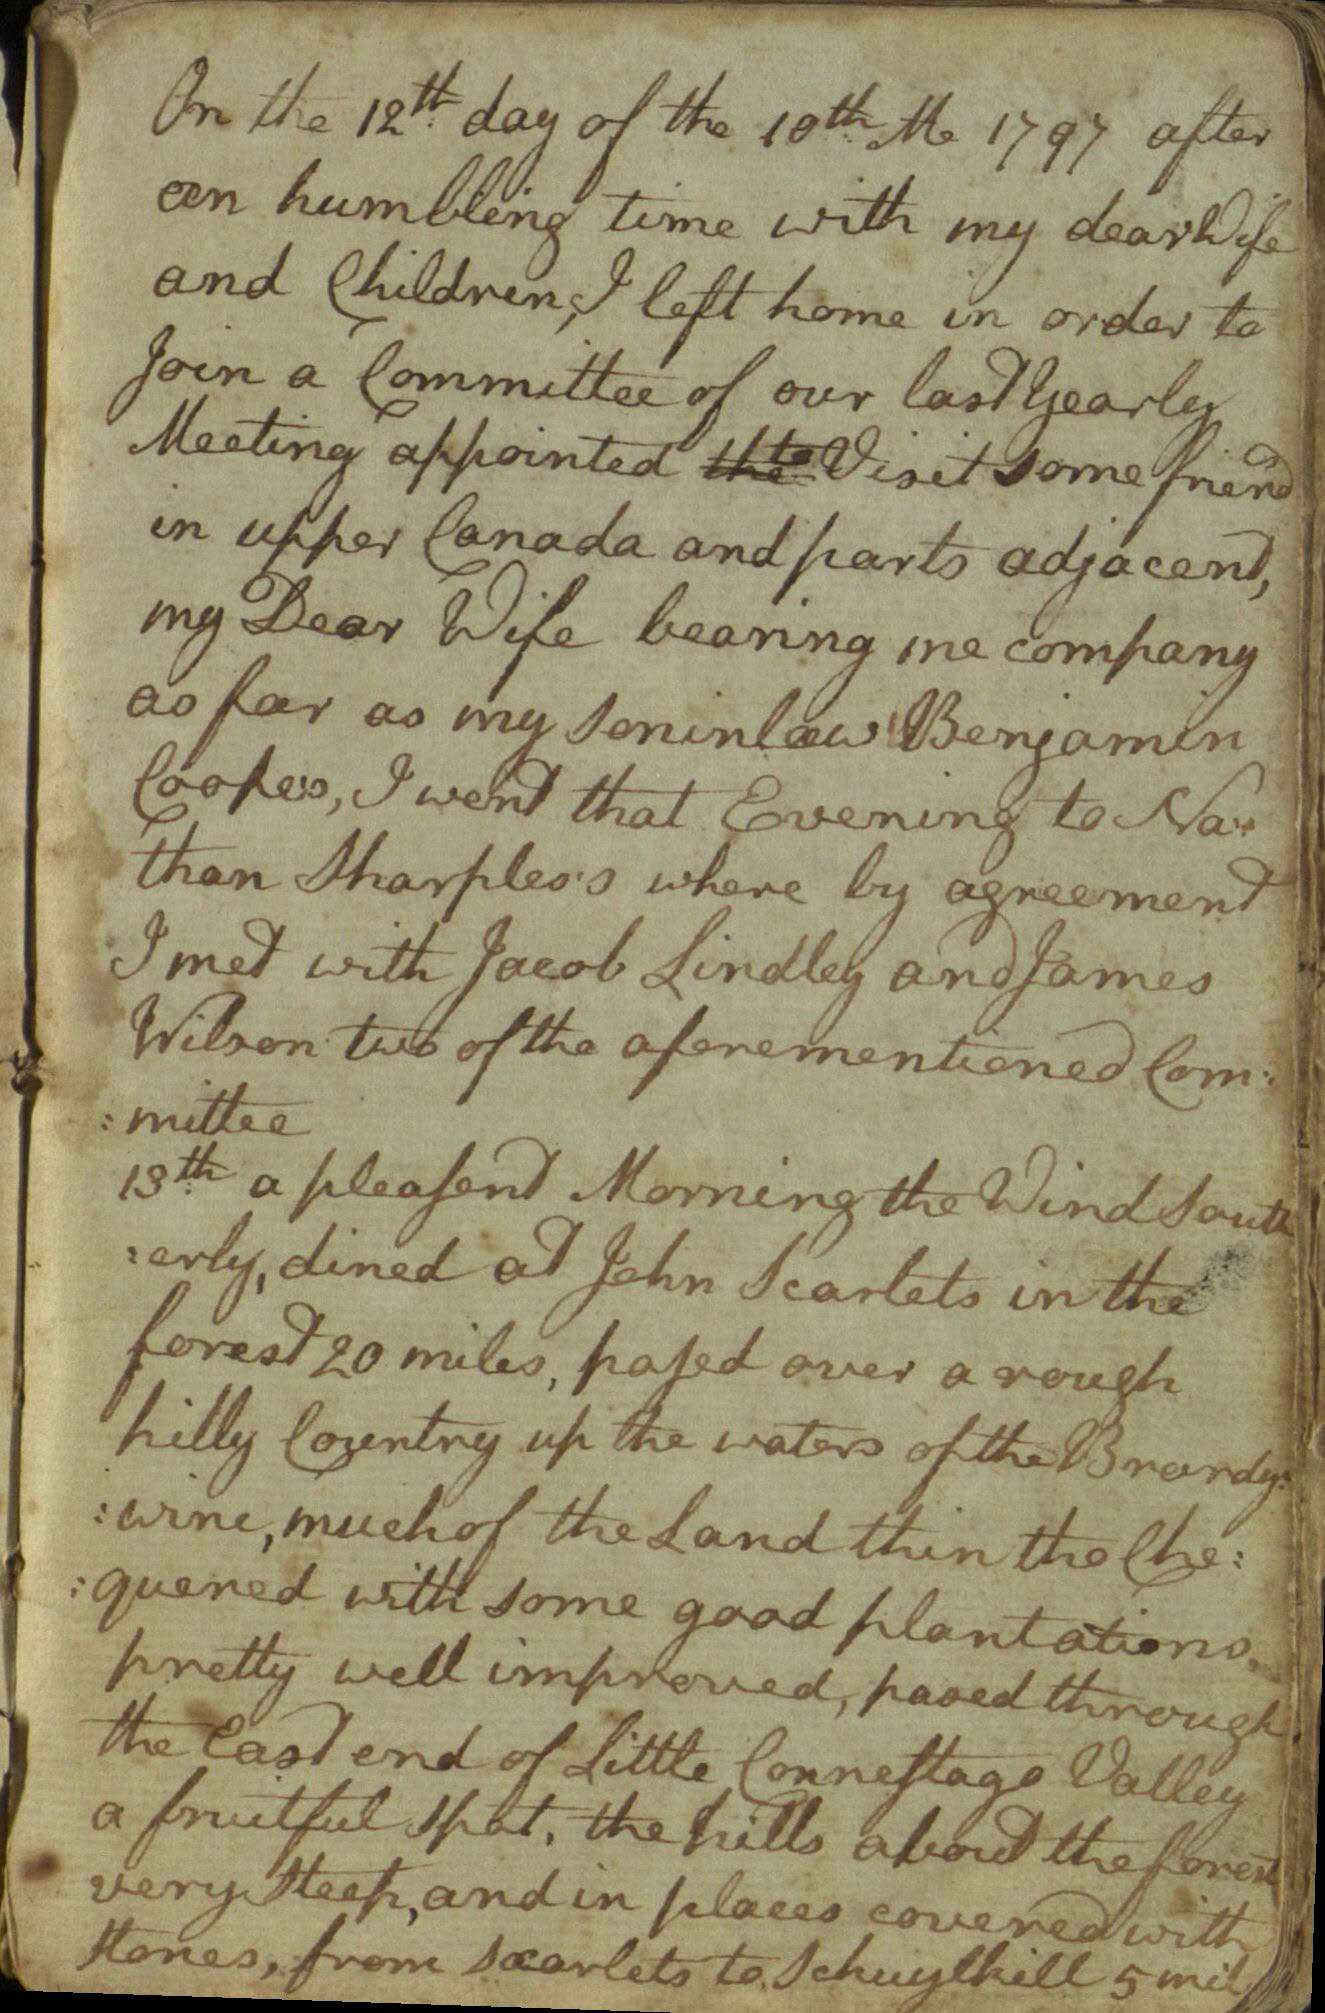 On the 12th day of the 10th Mo 1797 after
an humbling time with my dear Wife
and Children, I left home in order to
Join a Committee of our last Yearly
Meeting appointed the to Visit some friend
in upper Canada and parts adjacent,
my Dear Wife bearing me company
as far as my soninlaw Benjamin
Coopers, I went that Evening to Na:
than Sharples's where by agreement
I met with Jacob Lindley and James
Wilson two of the aforementioned Com:
:mittee
13th a pleasent Morning the Wind South
:erly, dined at John Scarlets in the
forest 20 miles, passed over a rough
hilly Country up the waters of the Brandy:
:wine, much of the Land thin tho Che:
:quered with some good plantations,
pretty well improved, pased through
the East end of Little Connestago Valley
a fruitful spot, the hills about the forest
very steep, and in places covered with
stones, from Scarlets to Schuylkill 5 mil